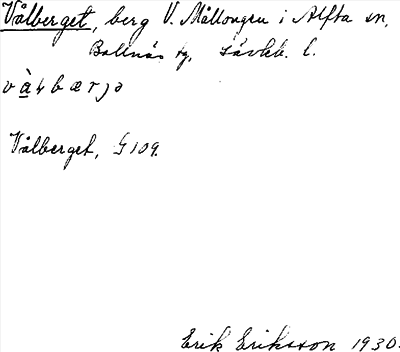 Vålberget, berg V. Mållongru i Alfta sn,
Bollnäs tg, Gävleb. l.
v à ɫ b æ r j ə
Vålberget, G 109.
Erik Eriksson 1930.